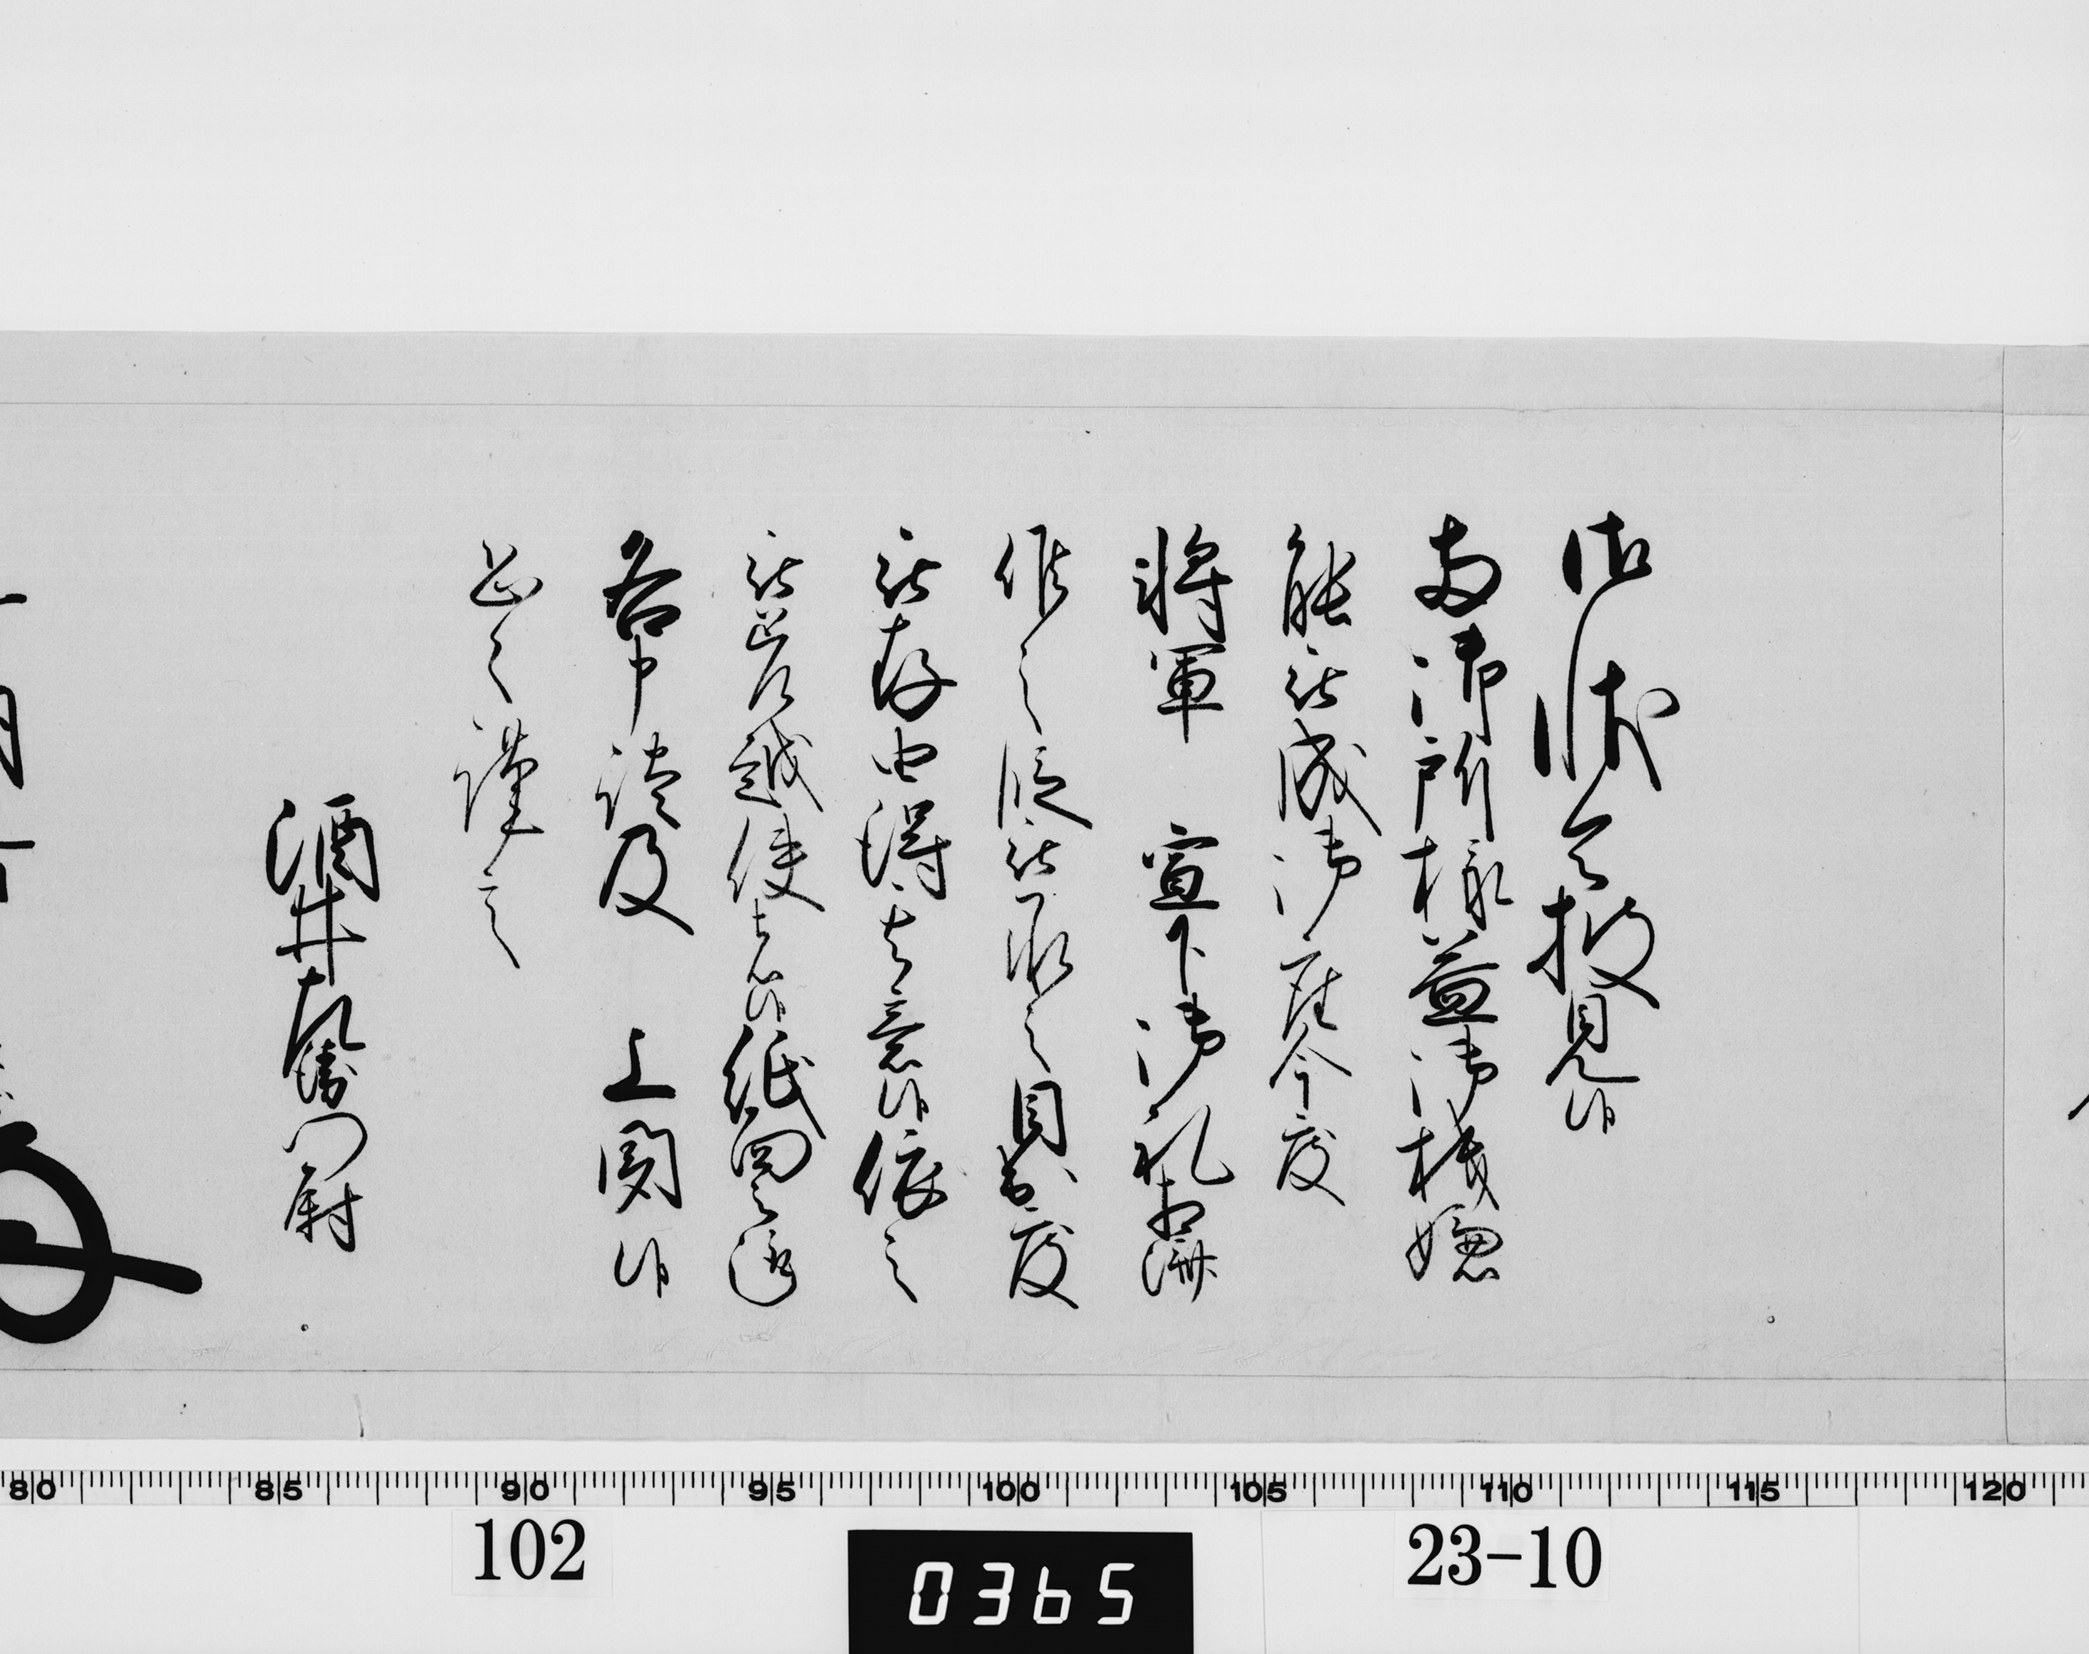 御状令披見候
両御所様益御機嫌
能被成御座今度
将軍 宣下御礼相済
候之段被承之目出度
被存由得其意候依之
被差越使者候紙面之通
各申談及 上聞候
恐々謹言
酒井左衛門尉
80 85 90 95 100 105 110 115 120
102
0365
23-10